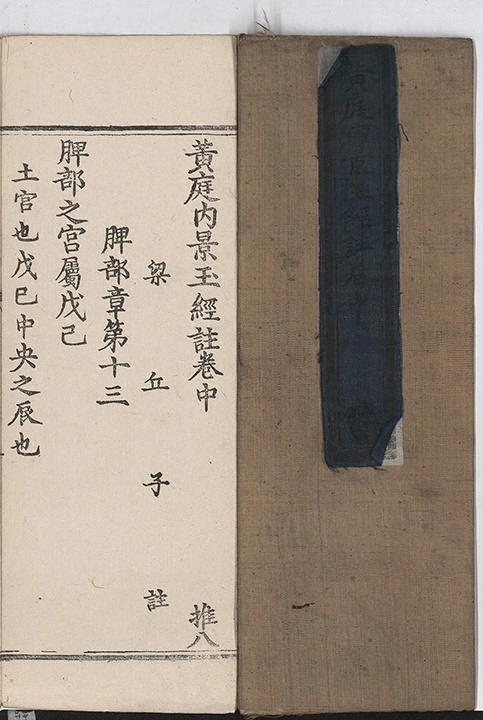 黃庭內景玉經註卷中
黃庭内景玉經註卷中 推八
梁丘子註
脾部章第十三
脾部之宮屬戊己
土宮也戊巳中央之辰也